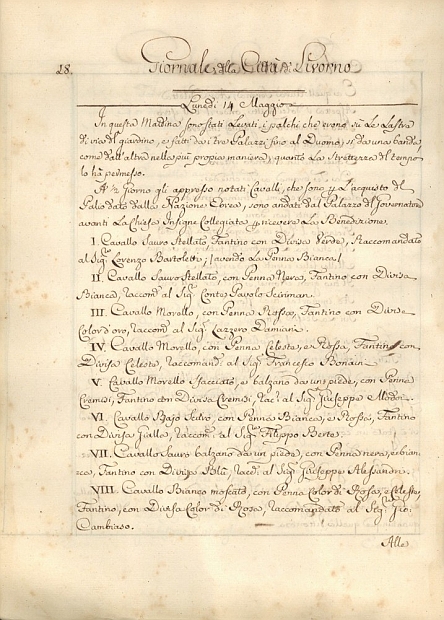 28. Giornale della Città di Livorno
Lunedi 14 Maggio
In questa Mattina sono stati Levati i palchi che erono su Le Lastra
di via del giardino, e fatti da i tre Palazzi fino al Duomo, sì da una banda,
come dall'altra nella più propria maniera, quanto La Strettezza del tempo
lo hà permesso.
A ½ Giorno gli appresso notati Cavalli, che sono p L'acquisto del
Palio dato dalla Nazione Ebrea, sono andati dal Palazzo del Governatore
avanti La Chiesa Insigne Collegiata p ricevere La Benedizione.
I. Cavallo Sauro Stellato, Fantino con Divisa Verde, Raccomandato
al Sigr Lorenzo Bartoletti; avendo La Penna Bianca
II. Cavallo Sauro Stellato, con Penna Nera, Fantino con Divisa
Bianca, raccomd al Sigr Conte Pavolo Sceriman.
III. Cavallo Morello, con Penna Rossa, Fantino con Divisa
Color d'oro, raccomd al Sigr Lazzero Damiani.
IV. Cavallo Morello, con Penna Celeste, e Rossa, Fantino con
Divisa Celeste, raccomand. al Sigr Francesco Bonain
V. Cavallo Morello Sfacciato, e balzano da un piede, con Penna
Cremisi, Fantino con Divisa Cremisi, racc. al Sigr Giuseppe
VI. Cavallo Bajo Sedro con Penna Bianca, e Rossa, Fantino
con Divisa Gialla, raccom. al Sigr Filippo Berte.
VII. Cavallo Sauro balzano da un piede, con Penna nera, e bian-
ca, Fantino con Divisa Blù, racd. al Sigr Giuseppe Alessandri.
VIII. Cavallo Bianco moscato, con Penna Color di Rosa, e Celeste,
Fantino, con Divisa Color di Rosa, raccomandato al Sigr Gio:
Cambiaso.
Alle